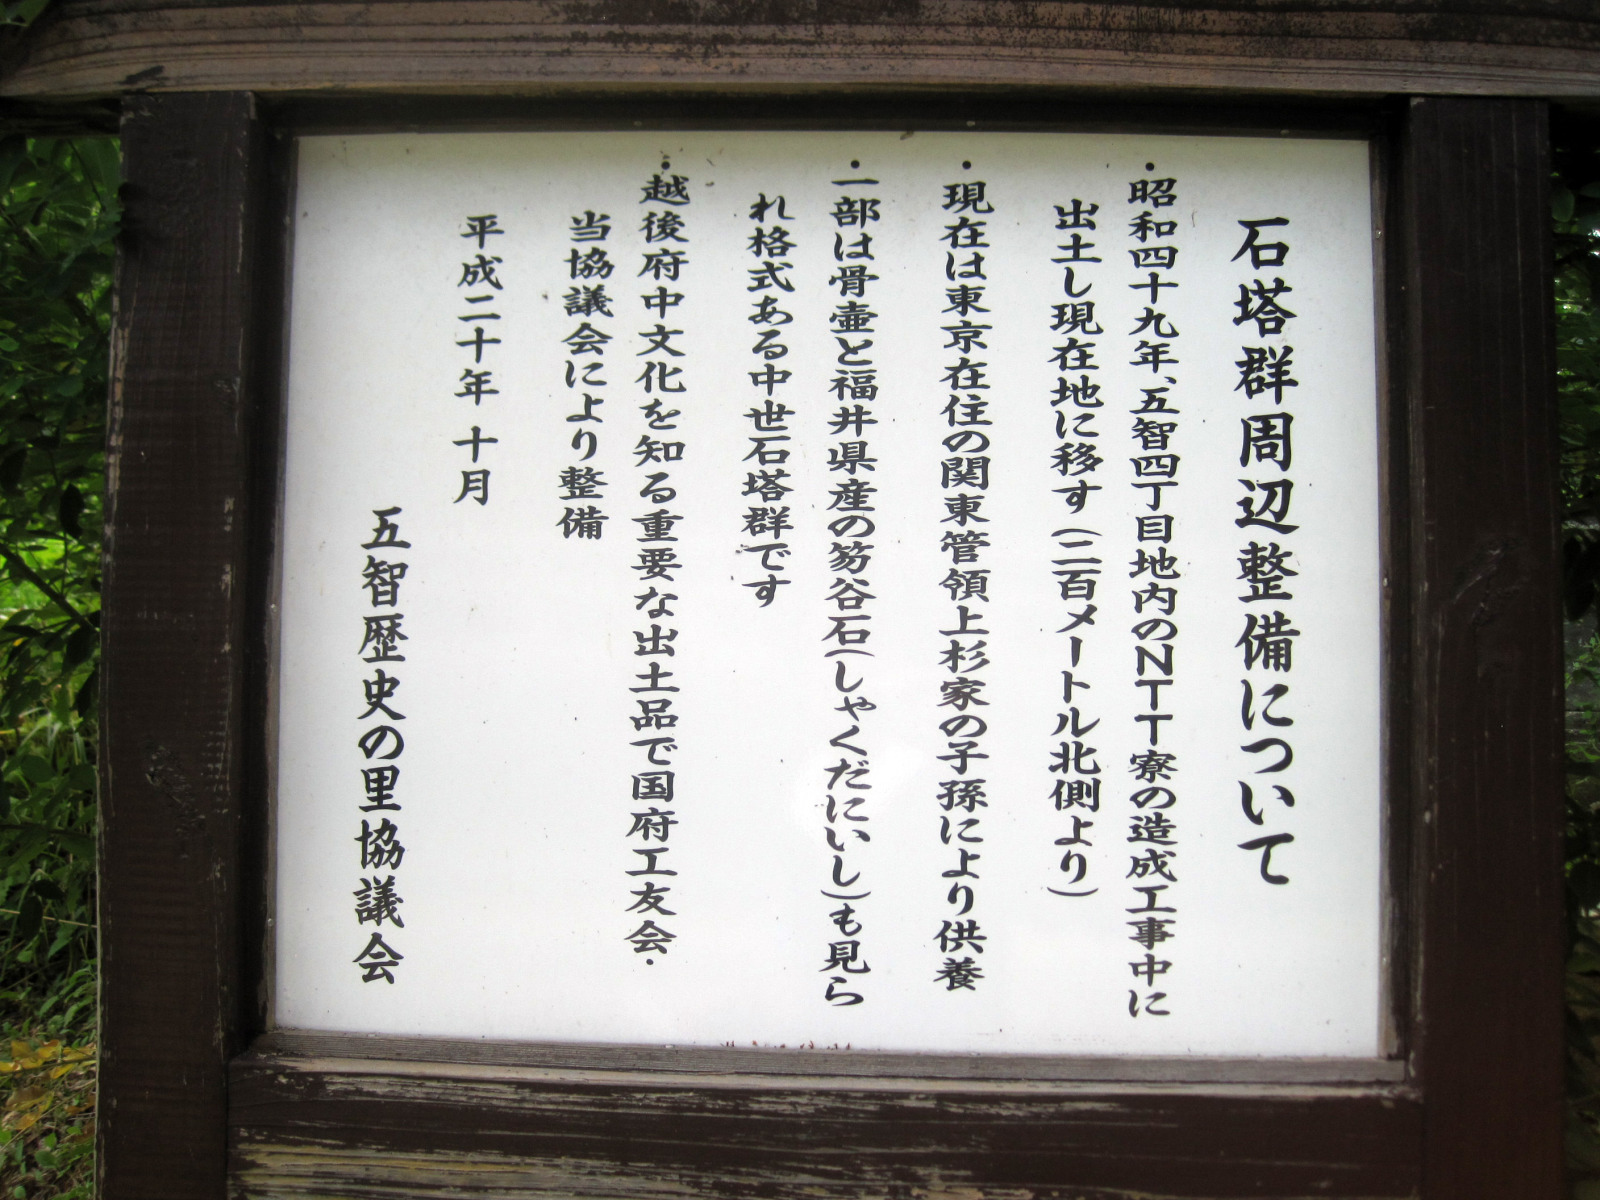 石塔群周辺整備について
・昭和四十九年、五智四丁目地内のNTT寮の造成工事中に
出土し現在地に移す(二百メートル北側より)
・現在は東京在住の関東管領上杉家の子孫により供養
・一部は骨壷と福井県産の笏谷石(しゃくだにいし)も見ら
れ格式ある中世石塔群です
・越後府中文化を知る重要な出土品で国府工友会・
当協議会により整備
平成二十年 十月
五智歴史の里協議会